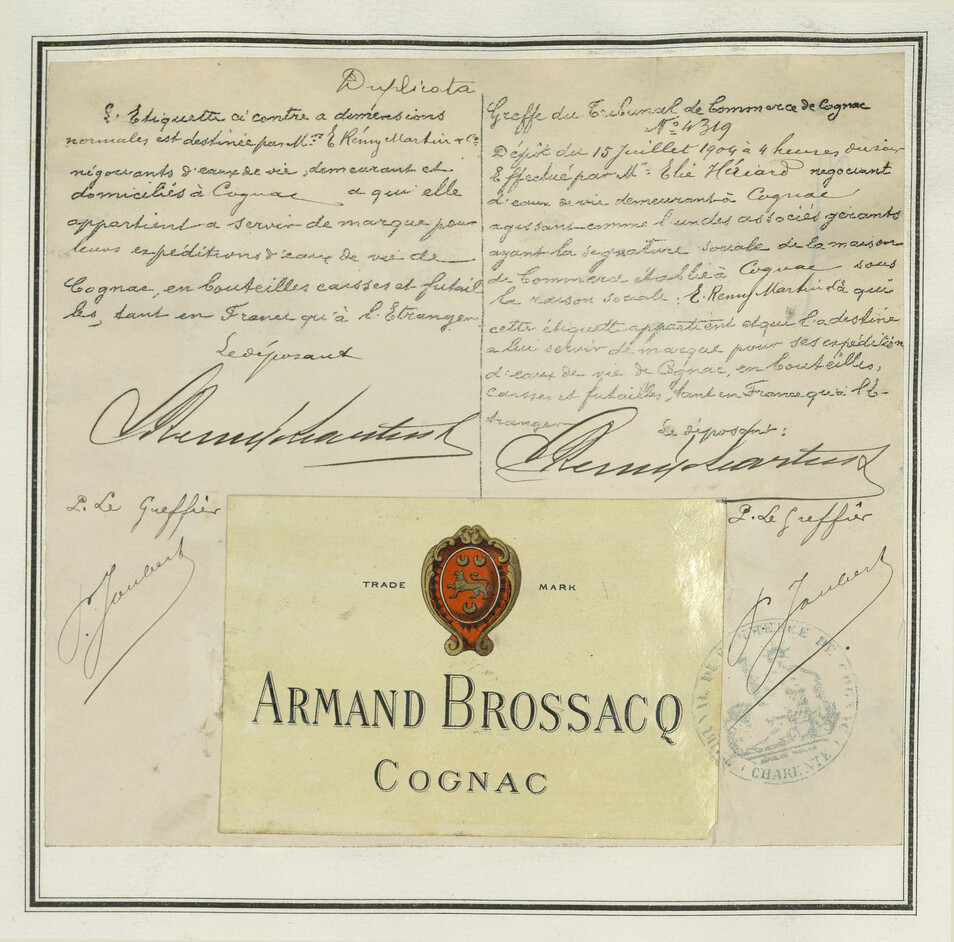 Duplicata
L'Etiquette ci contre a dimensions
normales est destinée par Mrs E. Rémy Martin & Co
négociants d'eaux de vie, demeurant et
domiciliés à Cognac a qui elle
appartient a servir de marque pour
leurs expéditions d'eaux de vie de
Cognac, en bouteilles caisses et futail
les, tant en France qu'à l'Etranger
Le déposant
E. Remy Martin & Co
P. Le Greffier
P. Joubert
Greffe du Tribunal de Commerce de Cognac
No 4319
Dépôt du 15 Juillet 1904 à 4 heures du soir
Effectué par Mr Elie Hériard négociant
d'eaux de vie demeurant à Cognac
agissant comme l'un des associés gérants
ayant la signature sociale de la maison
de Commerce établie à Cognac sous
la raison sociale: E. Remy Martin & Co à qui
cette étiquette appartient et qui l'a destine
a lui servir de marque pour ses expédition
d'eaux de vie de Cognac, en bouteilles,
caisses et futailles, tant en France qu'à l'E-
tranger
Le déposant:
E. Remy Martin & Co
P. Le Greffier
P. Joubert
TRADE MARK
ARMAND BROSSACQ
COGNAC
TRIBUNAL DE COMMERCE DE COGNAC
CHARENTE